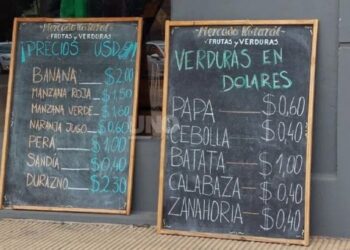 Mercado Natural
FRUTAS Y VERDURAS
¡PRECIOS USD$!
BANANA $2.00
MANZANA ROJA $1.50
MANZANA VERDE $1.60
NARANJA JUGO $0.60
PERA $1.00
SANDIA $0.40
DURAZNO $2.30
Mercado Natural
FRUTAS Y VERDURAS
VERDURAS EN
DOLARES
PAPA $0,60
CEBOLLA $0,40
BATATA $1,00
CALABAZA $0,40
ZANAHORIA $0,40